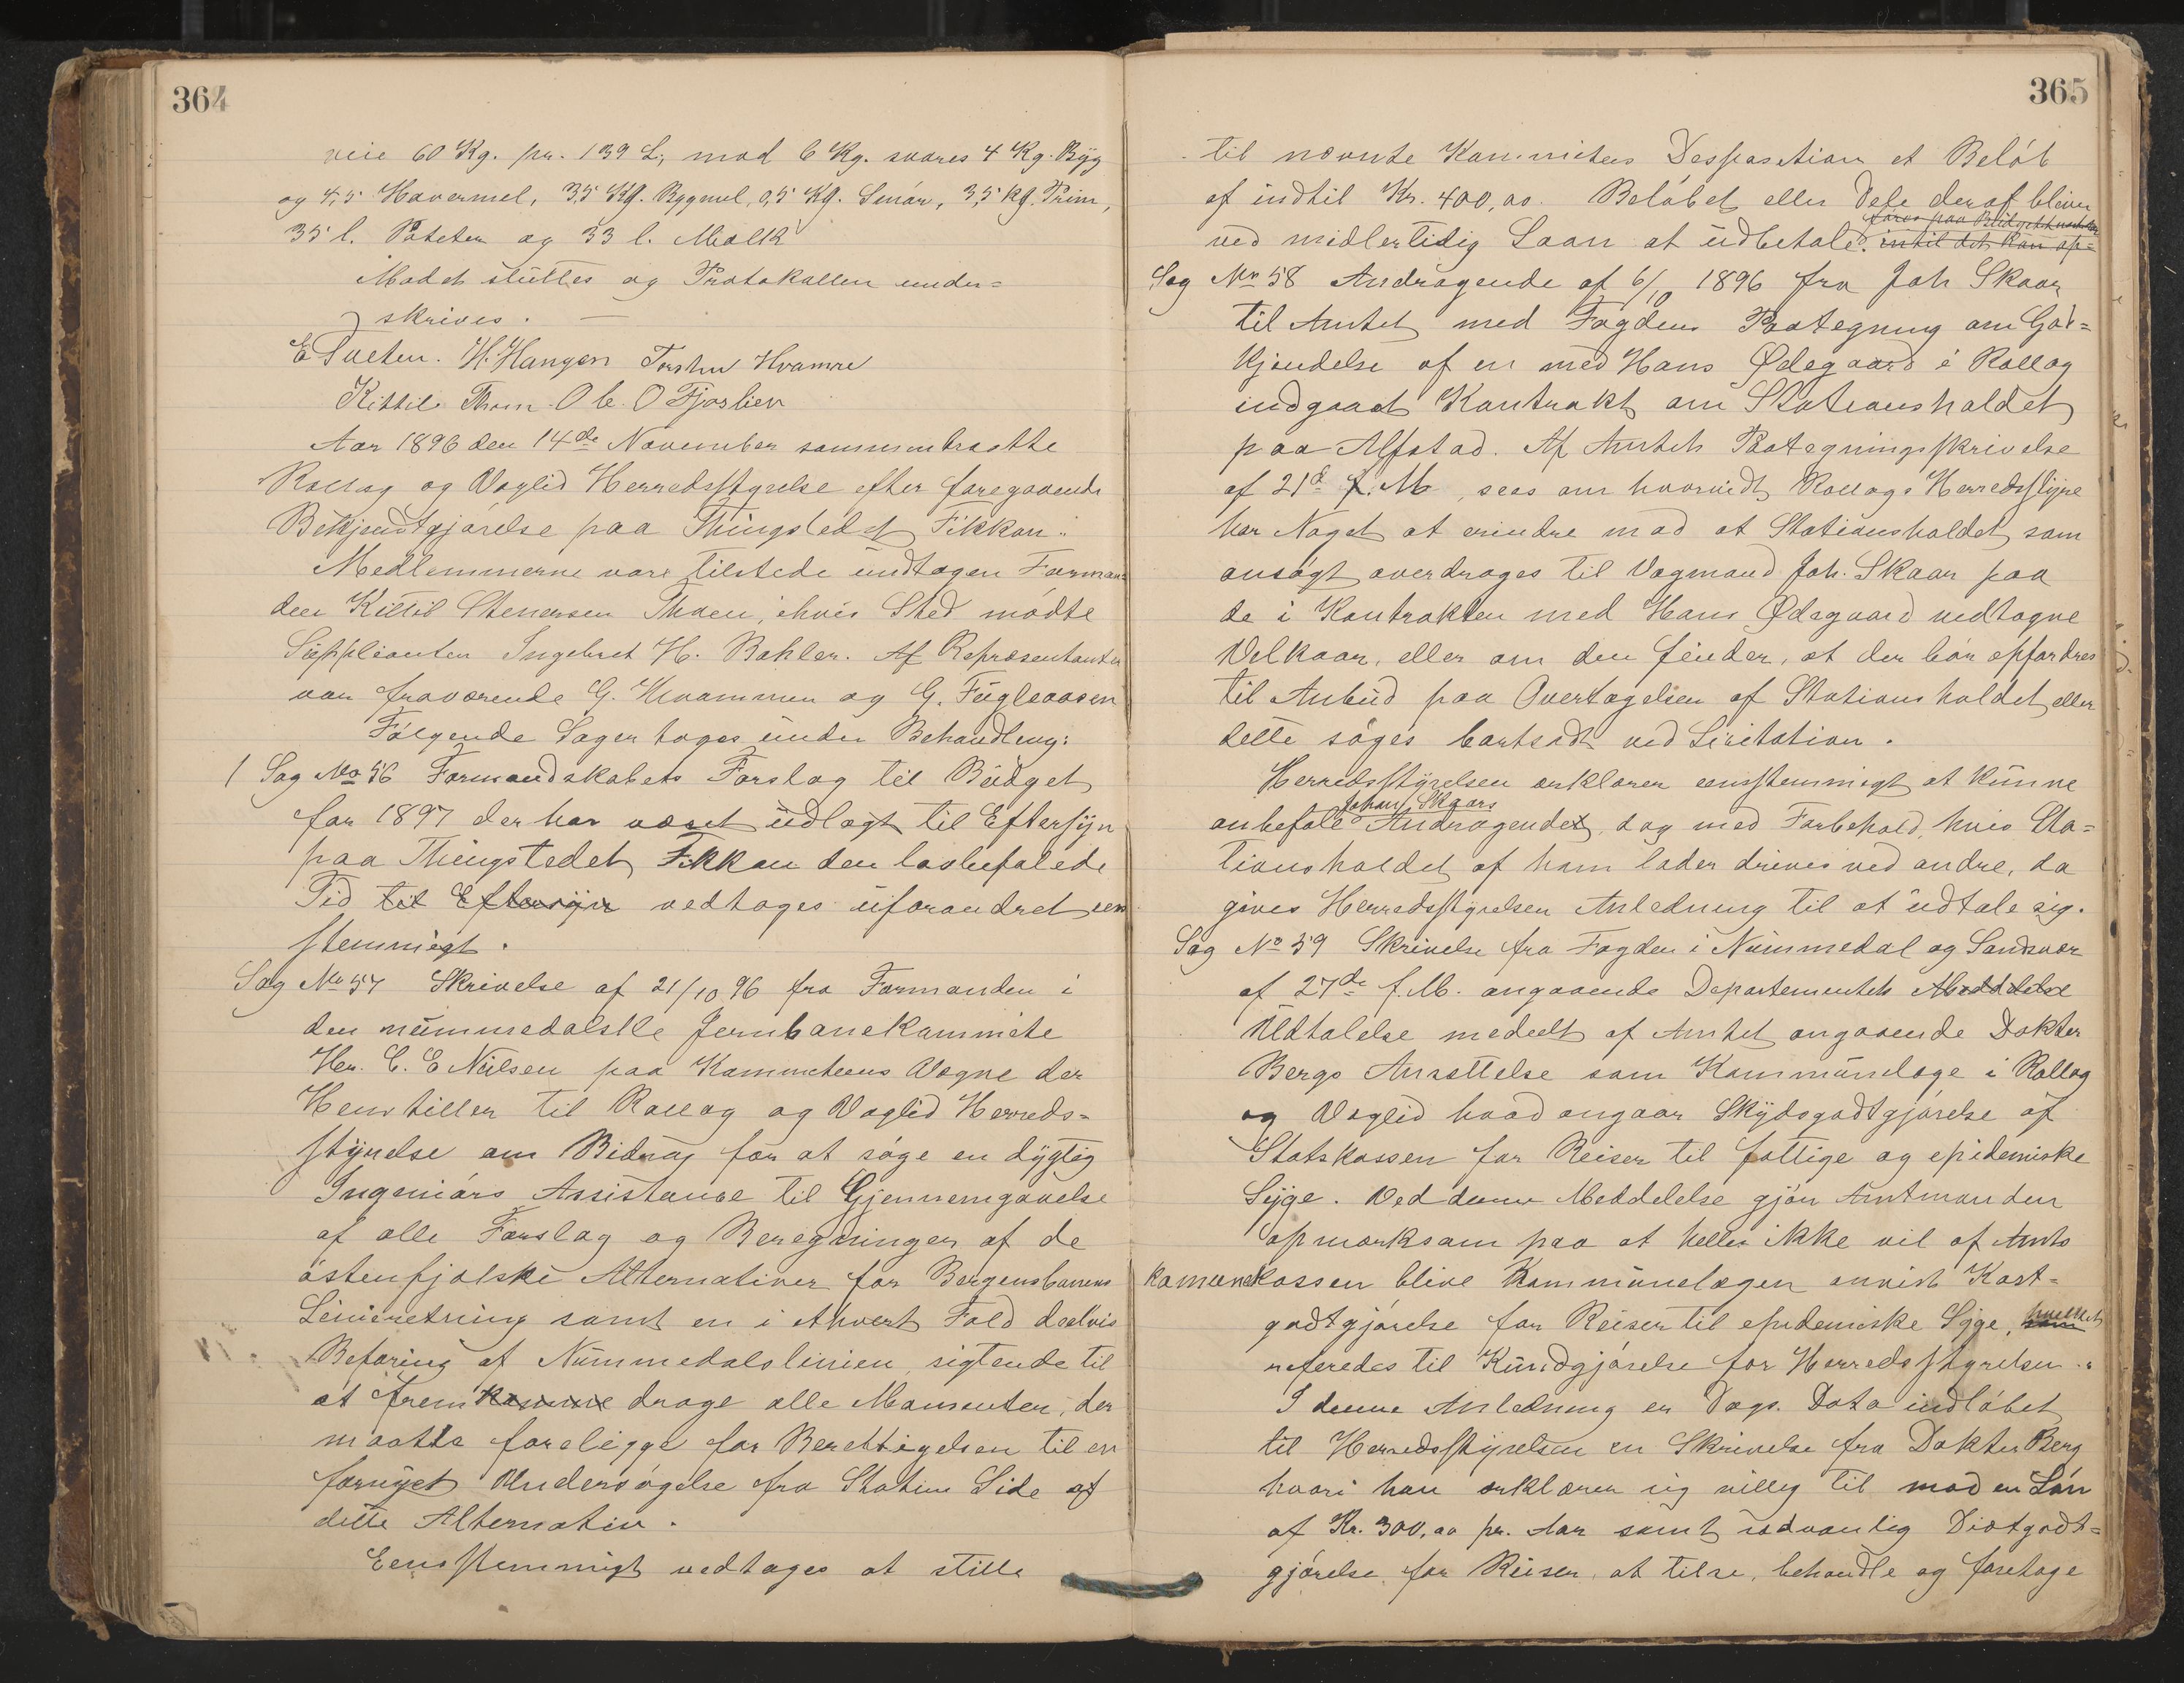 364
veie 60 Kg. pr. 139 L, mod 6 Kg. svares 4 Kg. Byg
og 4,5 Havermel, 3,5 Kg. Bygmel, 0,5 Kg. Smör, 3,5 kg. Prim,
35 l. Poteter og 33 l. Melk
Mødet sluttes og Protokollen under=
skrives.
E Sveten. H. Haugen Torsten Hvamre
Kittil Thoen O C. O Fjøslien
Aar 1896 den 14de November sammentraatte
Rollag og Veglid Herredsstyrelse efter foregaaende
Bekjendtgjørelse paa Thingstedet Fikkan:
Medlemmerne vare tilstede undtagen Forman=
den Kittil Stenersen Thoen, i hvis Sted mødte
Suppleanten Ingebret H. Bakler. Af Repræsentanter
var fraværende G. Kvammen og G. Fugleaasen
Følgende Sager toges under Behandling:
1 Sag No 56 Formandskabets Forslag til Budget
for 1897 der har været udlagt til Eftersyn
paa Thingstedet Fikkan den lovbefalede
Tid til Eftersyn vedtages uforandret een
stemmigt.
Sag No 57 Skrivelse af 21/10 96 fra Formanden i
den nummedalske Jernbanekommite
Her. C. E Nielsen paa Kommiteens Vegne der
Henstiller til Rollag og Veglid Herreds=
styrelse om Bidrag for at søge en dygtig
Ingeniørs Assistance til Gjennemgaaelse
af alle Forslag og Beregninger af de
østenfjelske Alternativer for Bergensbanens
Linieretning samt en i ethvert Fald deelvis
Befaring af Nummedalslinien, sigtende til
at fremkomme drage alle Momenter, der
maatte foreligge for Berettigelsen til en
fornyet Undersøgelse fra Statens Side af
dette Alternativ.
Eensstemmigt vedtages at stille
365
til nævnte Kommitees Desposition et Beløb
af indtil Kr. 400,00. Beløbet eller Dele deraf bliver
føres paa Budgettet
ved midlertidig Laan at udbetale. intil det kan op=
Sag No 58 Andragende af 6/10 1896 fra Joh Skaar
til Amtet med Fogdens Paategning om God=
kjendelse af en med Hans Ødegaard i Rollag
indgaaet Kontrakt om Stationsholdet
paa Alfstad. Af Amtets Paategningsskrivelse
af 21d f. M, sees om hvorvidt Rollags Herredsstyre
har Noget at erindre mod at Stationsholdet som
ansøgt overdrages til Vognmand Joh. Skaar paa
de i Kontrakten med Hans Ødegaard vedtagne
Vilkaar, eller om den finder, at der bør opfordres
til Anbud paa Overtagelsen af Stationsholdet eller
dette søges bortsadt ved Licitation.
Herredsstyrelsen erklærer eensstemmigt at kunne
Johan Skaars
anbefale Andragendet, dog med Forbehold, hvis Sta=
tionsholdet af ham lader drives ved andre, da
gives Herredsstyrelsen Anledning til at udtale sig.
Sag No 59 Skrivelse fra Fogden i Nummedal og Sandsvær
af 27de f. M. angaaende Departementets Meddelelse
Udtalelse medeelt af Amtet angaaende Dokter
Bergs Ansættelse som Kommunelæge i Rollag
og Veglid hvad angaar Skydsgodtgjørelse af
Statskassen for Reiser til fattige og epidemiske
Syge. Ved denne Meddelelse gjør Amtmanden
opmerksam paa at heller ikke vil af Amts
komunekassen blive Kommunelægen anvist Kost=
godtgjørelse for Reiser til epidemiske Syge, som hvilket
referedes til Kundgjørelse for Herredsstyrelsen.
I denne Anledning er Dags. Dato indløbet
til Herredsstyrelsen en Skrivelse fra Dokter Berg
hvori han erklærer sig villig til mod en Løn
af Kr. 300,00 pr. Aar samt sedvanlig Diætgodt=
gjørelse for Reiser, at tilse, behandle og foretage